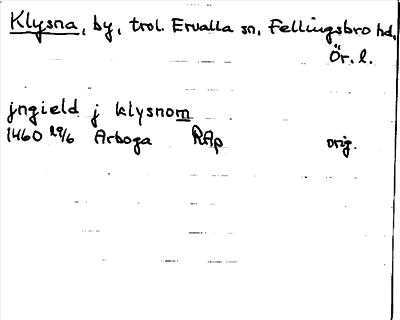 Klysna, by, trol. Ervalla sn, Fellingsbro hd,
Ör. l.
jngield j klysnom
1460 19/6 Arboga RAp orig.